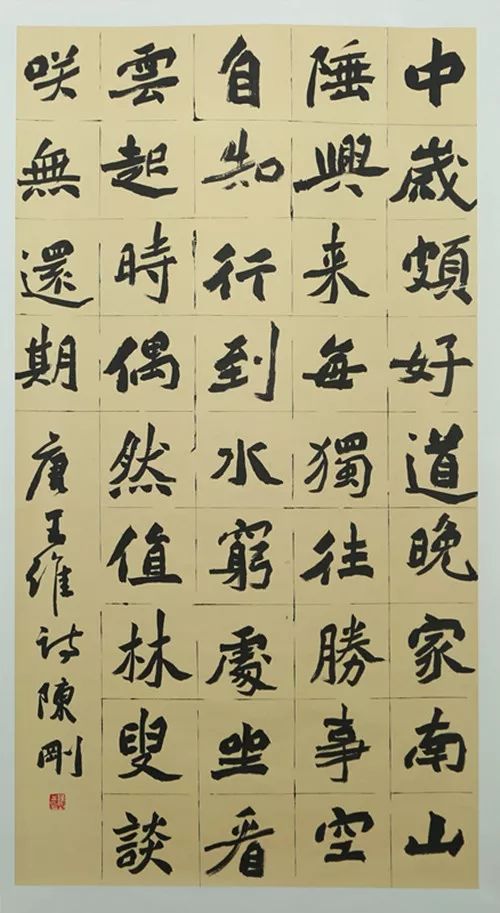 中歲頗好道晚家南山
陲興来每獨往勝事空
自知行到水窮處坐看
雲起時偶然值林叟談
咲無還期 唐王維詩陳剛